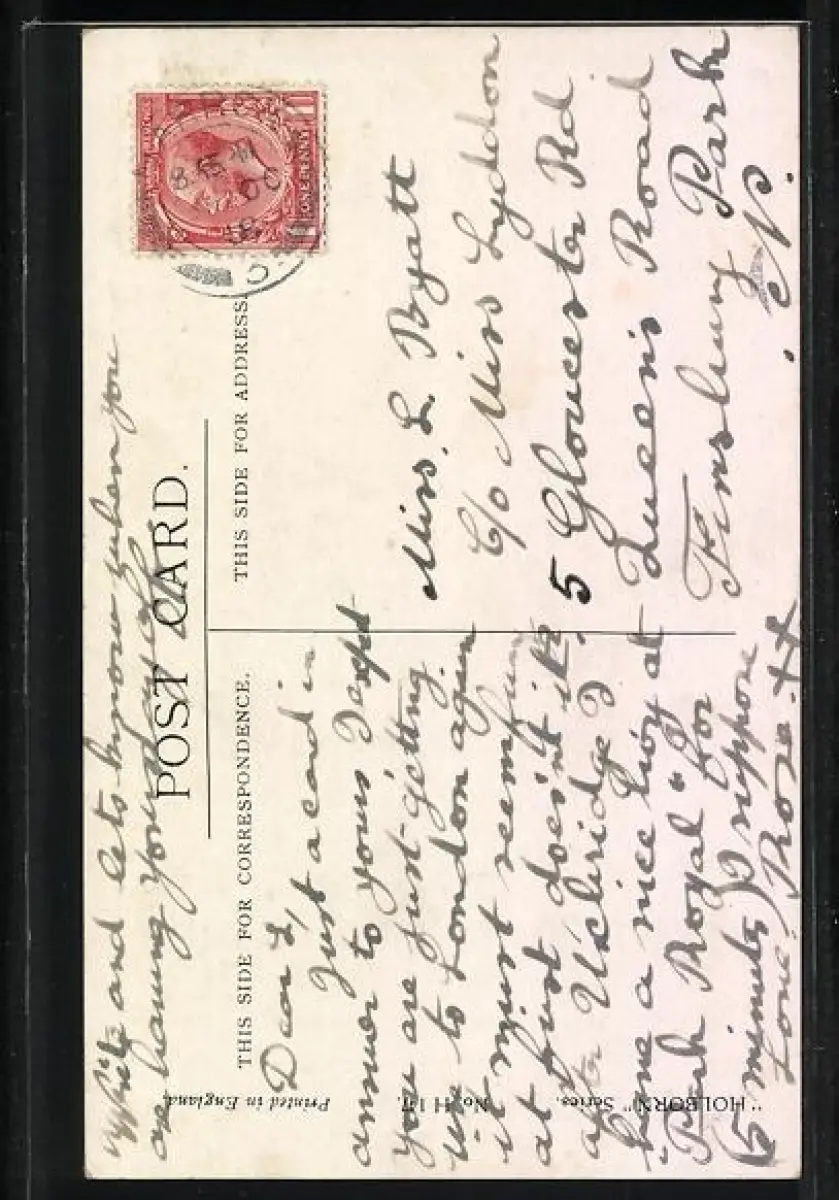 Write and lets know when you
are having your day off
POST CARD.
THIS SIDE FOR CORRESPONDENCE.
THIS SIDE FOR ADDRESS.
Dear L,
Just a card in
answer to yours I expt
you are just getting
use to London again
it must seem fun
at first doesn't it
after Uxbridge I
"home a nice boy at
Park Royal" for
(5 minutes) I suppose
Love, Rose. xx
Miss. L. Byatt
C/o Miss Lyddon
5 Gloucester Rd
Queen's Road
Finsbury Park
N.
ONE PENNY
"HOLBORN" Series. No.
Printed in England.